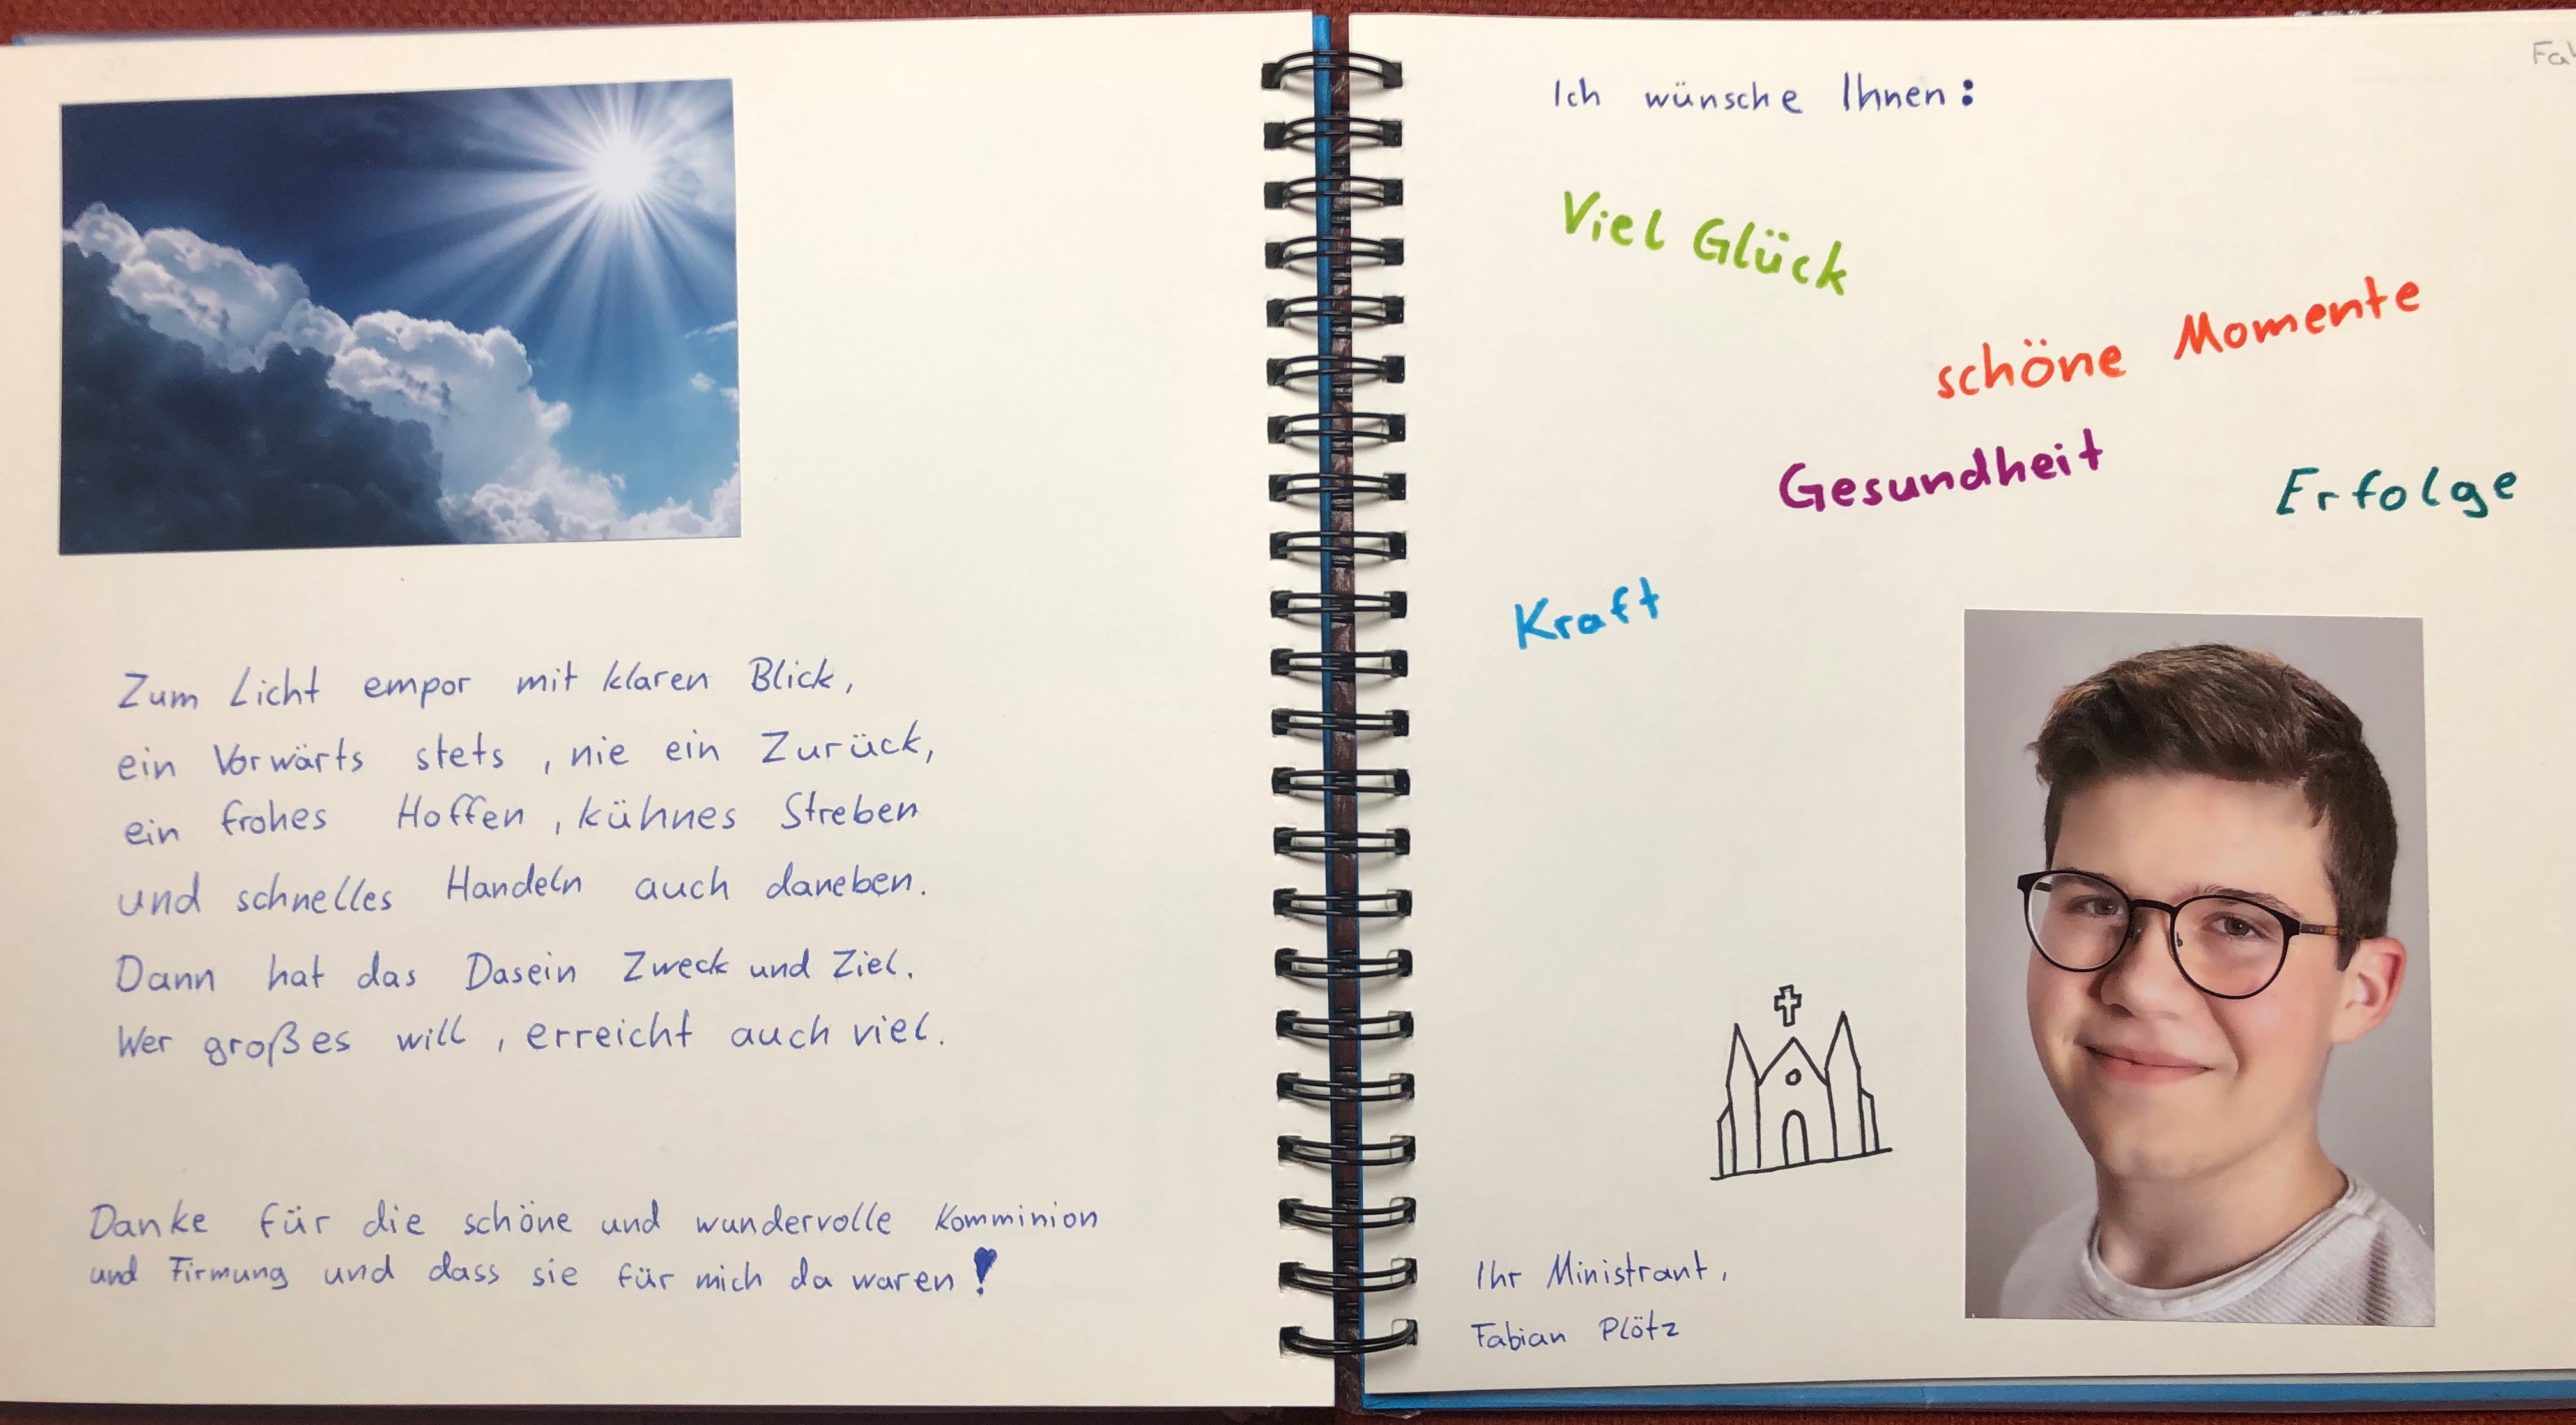 Zum Licht empor mit klaren Blick,
ein Vorwärts stets, nie ein Zurück,
ein frohes Hoffen, kühnes Streben
und schnelles Handeln auch daneben.
Dann hat das Dasein Zweck und Ziel.
Wer großes will, erreicht auch viel.
Danke für die schöne und wundervolle Komminion
und Firmung und dass sie für mich da waren!
Ich wünsche Ihnen:
Viel Glück
schöne Momente
Gesundheit
Erfolge
Kraft
Ihr Ministrant,
Fabian Plötz